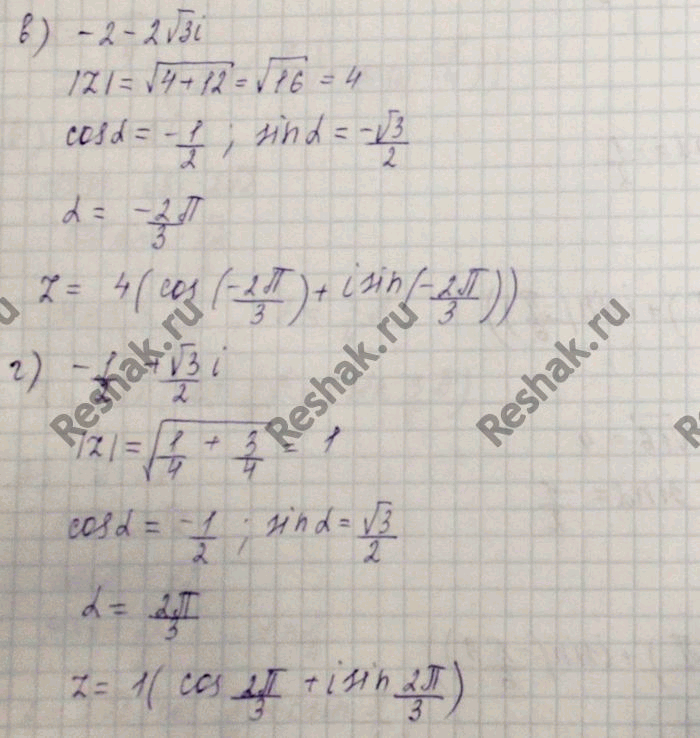 в) -2-2√3i
|z| = √(4+12) = √16 = 4
cosα = -1/2 ; sinα = -√3/2
α = -2π/3
z = 4(cos(-2π/3) + i sin(-2π/3))
г) -1/2 + √3/2 i
|z| = √(1/4 + 3/4) = 1
cosα = -1/2 ; sinα = √3/2
α = 2π/3
z = 1( cos 2π/3 + i sin 2π/3)
Reshak.ru
Reshak.ru
Reshak.ru